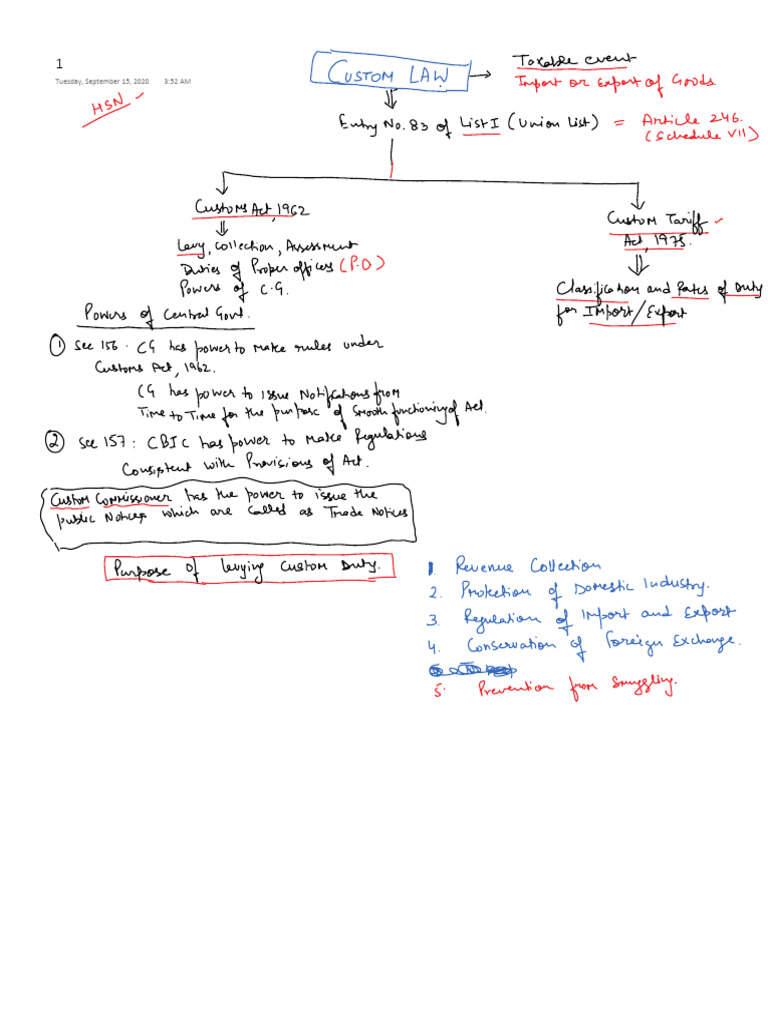 1
Tuesday, September 15, 2020 3:52 AM
HSN
CUSTOM LAW
Taxable event
Import or Export of Goods
Entry No. 83 of List I (Union List) = Article 246.
(Schedule VII)
Customs Act, 1962
Levy, Collection, Assessment
Duties of Proper officer (P.O)
Powers of C.G.
Custom Tariff
Act, 1975.
Classification and Rates of Duty
for Import/Export
Powers of Central Govt.
① Sec 156. CG has power to make rules under
Customs Act, 1962.
CG has power to issue Notifications from
Time to Time for the purpose of smooth functioning of Act.
② Sec 157: CBIC has power to make Regulations
Consistent with Provisions of Act.
Custom Commissioner has the power to issue the
public Notices which are called as Trade Notices
Purpose of levying Custom Duty.
1. Revenue Collection
2. Protection of Domestic Industry.
3. Regulation of Import and Export
4. Conservation of Foreign Exchange.
5. Prevention from Smuggling.